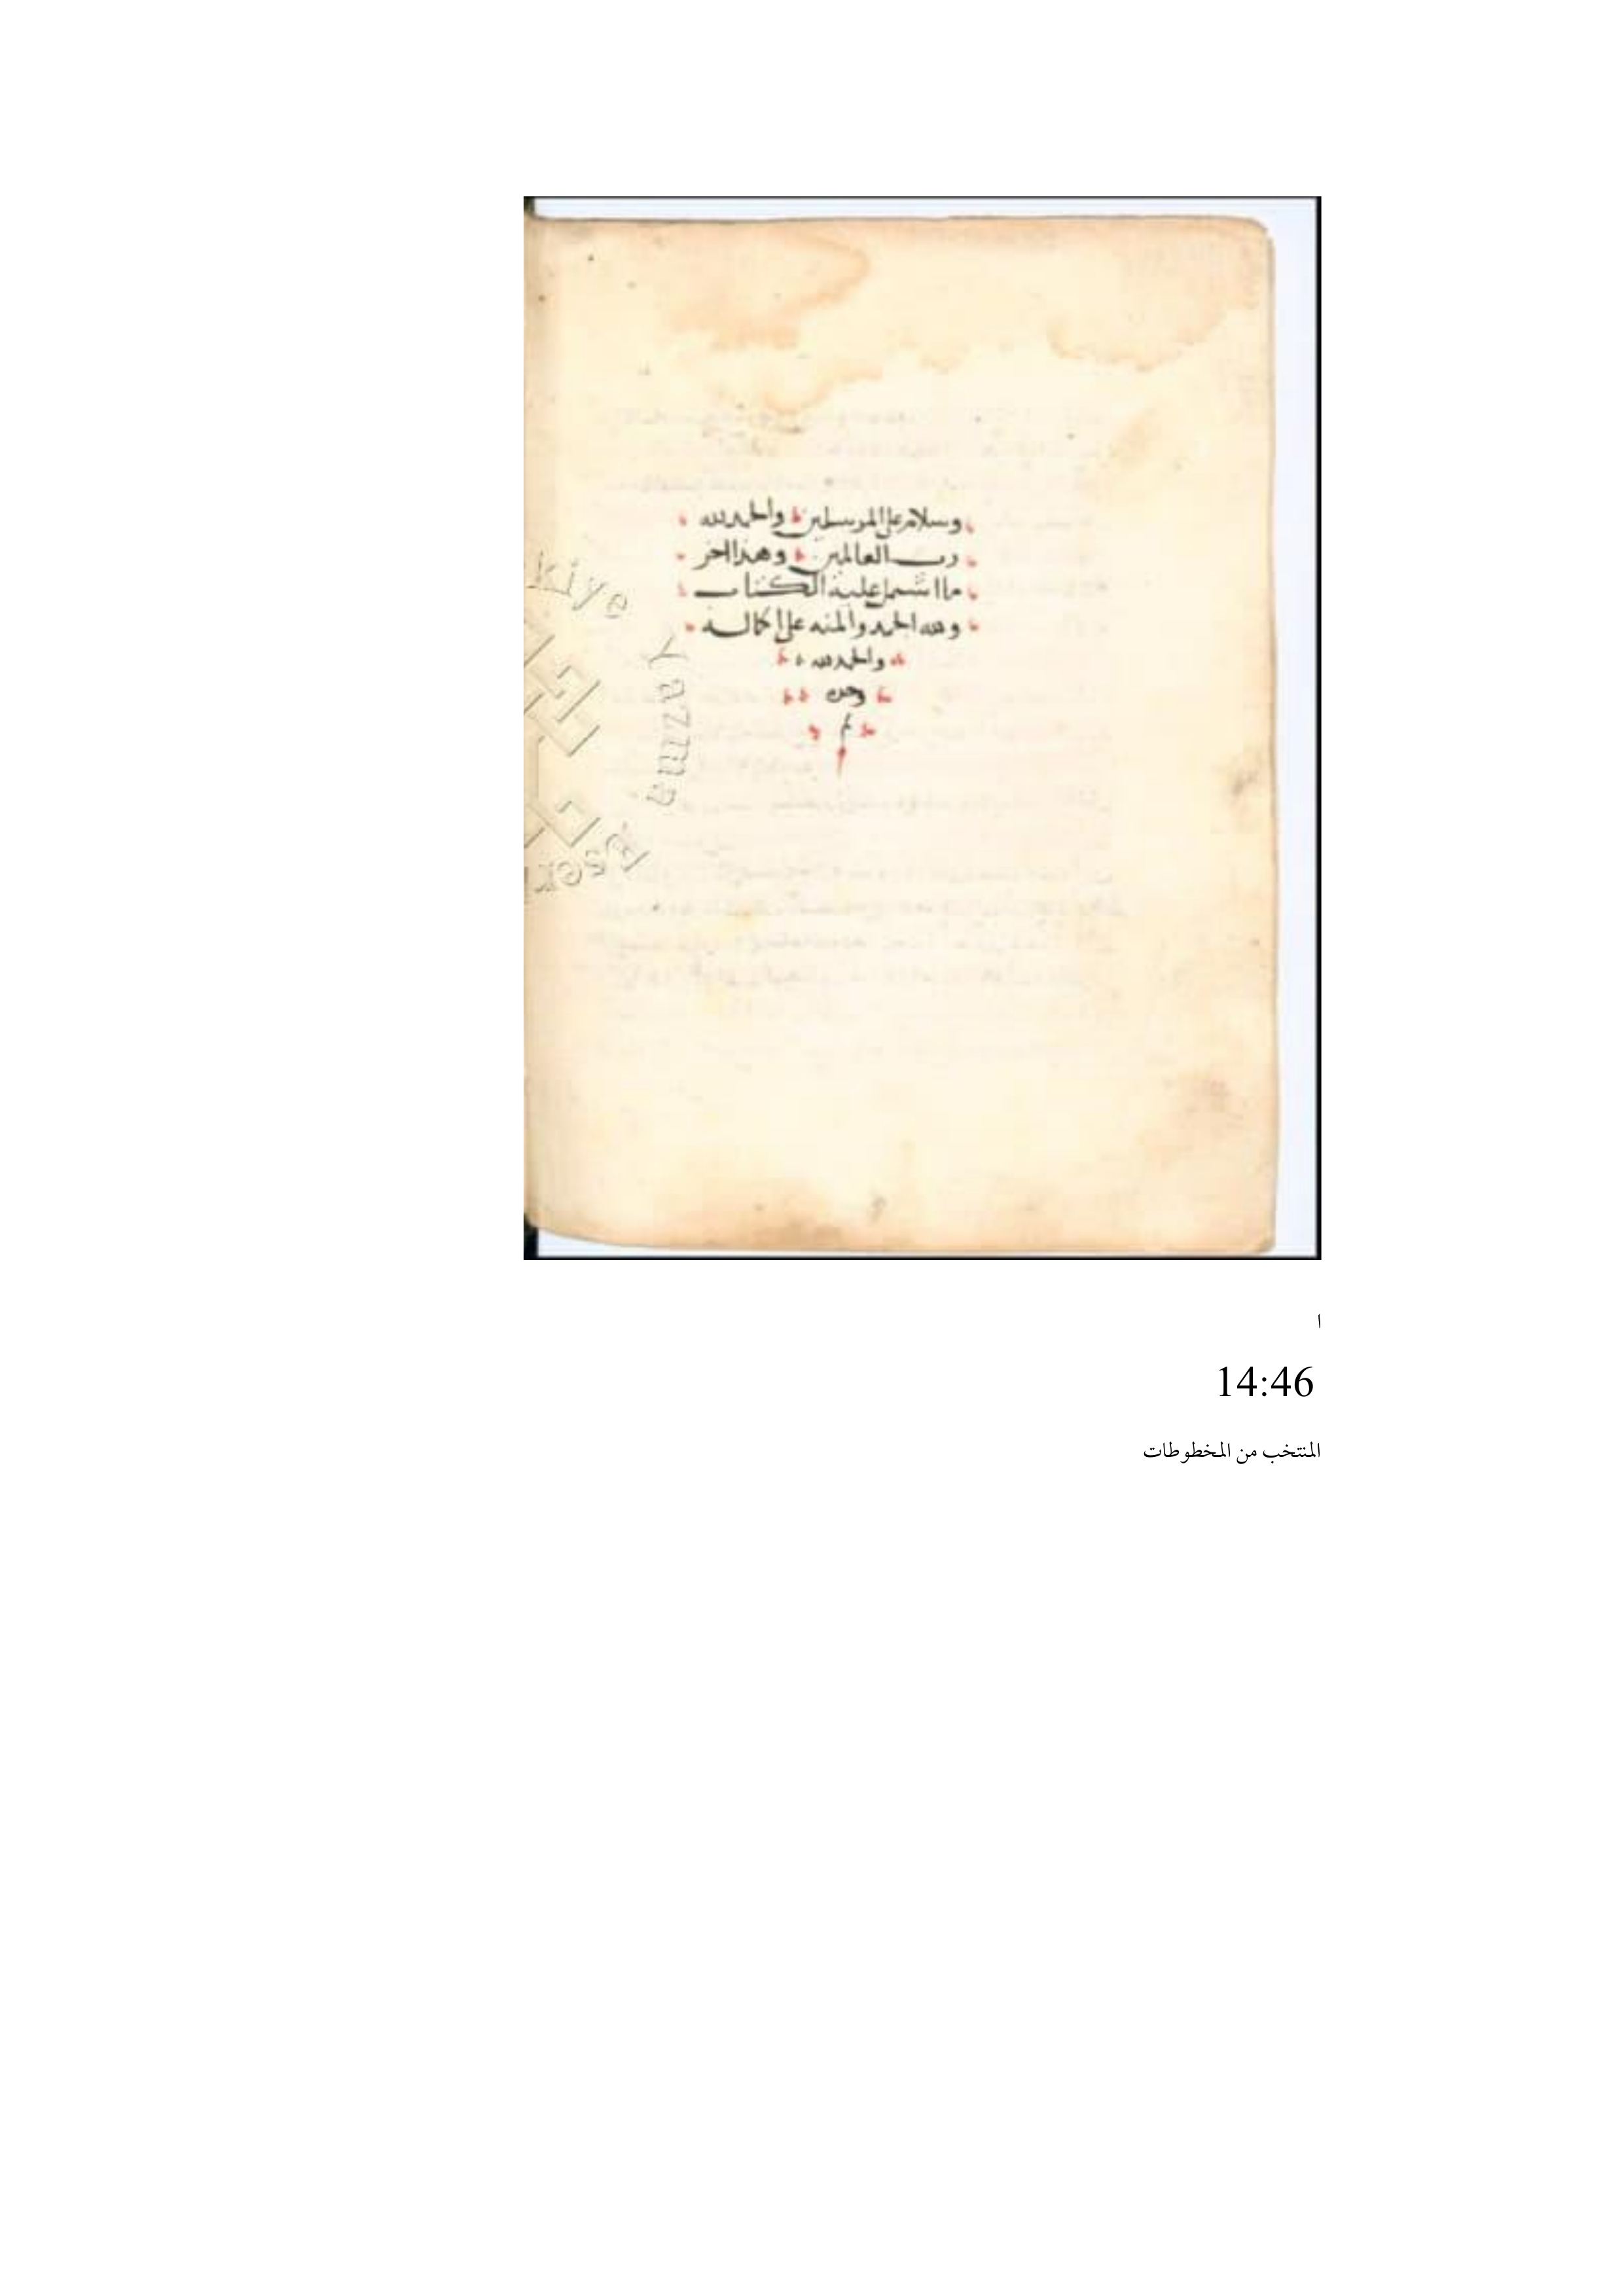 وسلام على المرسلين والحمد لله
رب العالمين وهذا اخر
ما اشتمل عليه الكتاب
ولله الحمد والمنه على اكماله
والحمد لله
وحده
م
kiye Yazma Eser
ا
14:46
المنتخب من المخطوطات